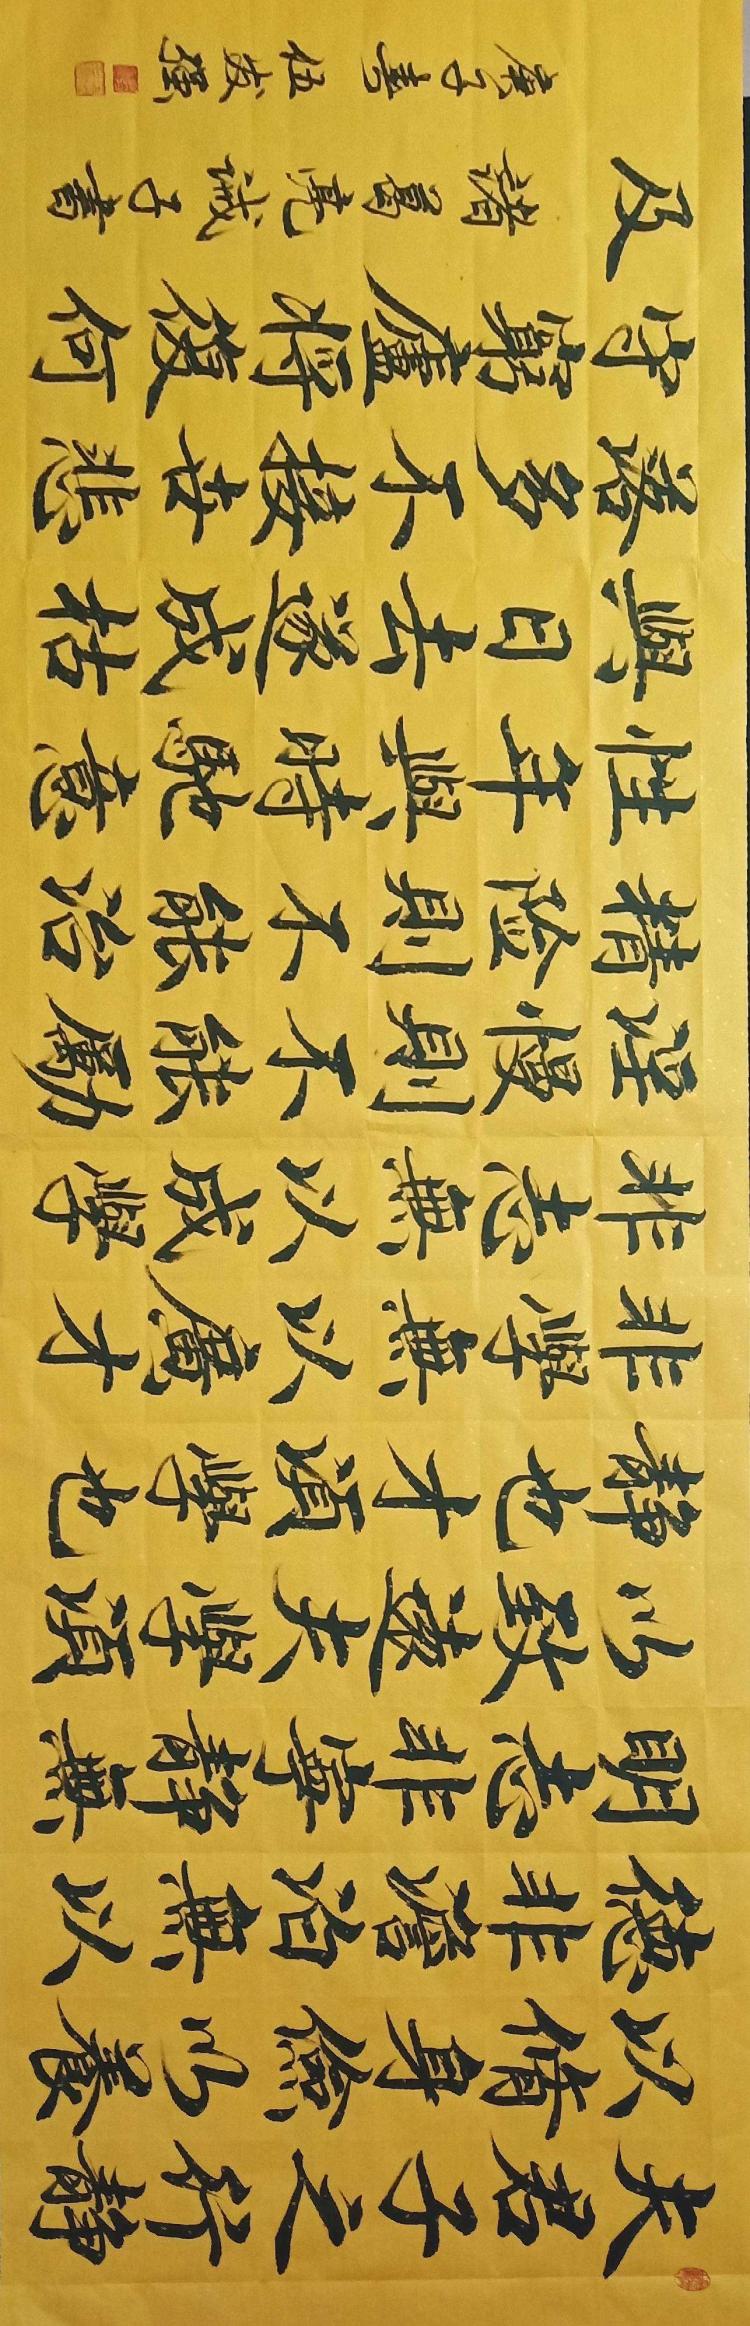 夫君子之行静
以脩身儉以養
德非澹泊無以
明志非寧静無
以致遠夫學須
静也才須學也
非學無以廣才
非志無以成學
淫慢則不能勵
精險則不能治
性年與時馳意
與日去遂成枯
落多不接世悲
守窮廬將復何
及 諸葛亮誡子書
庚子春 伍友強